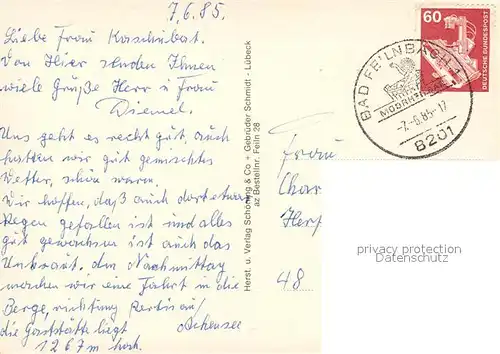 7.6.85.
Liebe Frau Kaschubat.
Von Hier senden Ihnen
viele Grüße Herr u Frau
Diemel.
Uns geht es recht gut, auch
hatten wir gut gemischtes
Wetter, schön warm.
Wir hoffen, daß auch dort etwas
Regen gefallen ist und alles
gut gewachsen ist auch das
Unkraut. den Nachmittag
machen wir eine Fahrt in die
Berge, richtung Pertisau/
Achensee
die Gaststätte liegt
1267m hoch.
Herst. u. Verlag Schöning & Co + Gebrüder Schmidt - Lübeck
az Bestellnr. Feiln 28
60
DEUTSCHE BUNDESPOST
BAD FEILNBACH 1
-7.-6.85-17
8201
Frau
Char
Herf
48
privacy protection
Datenschutz